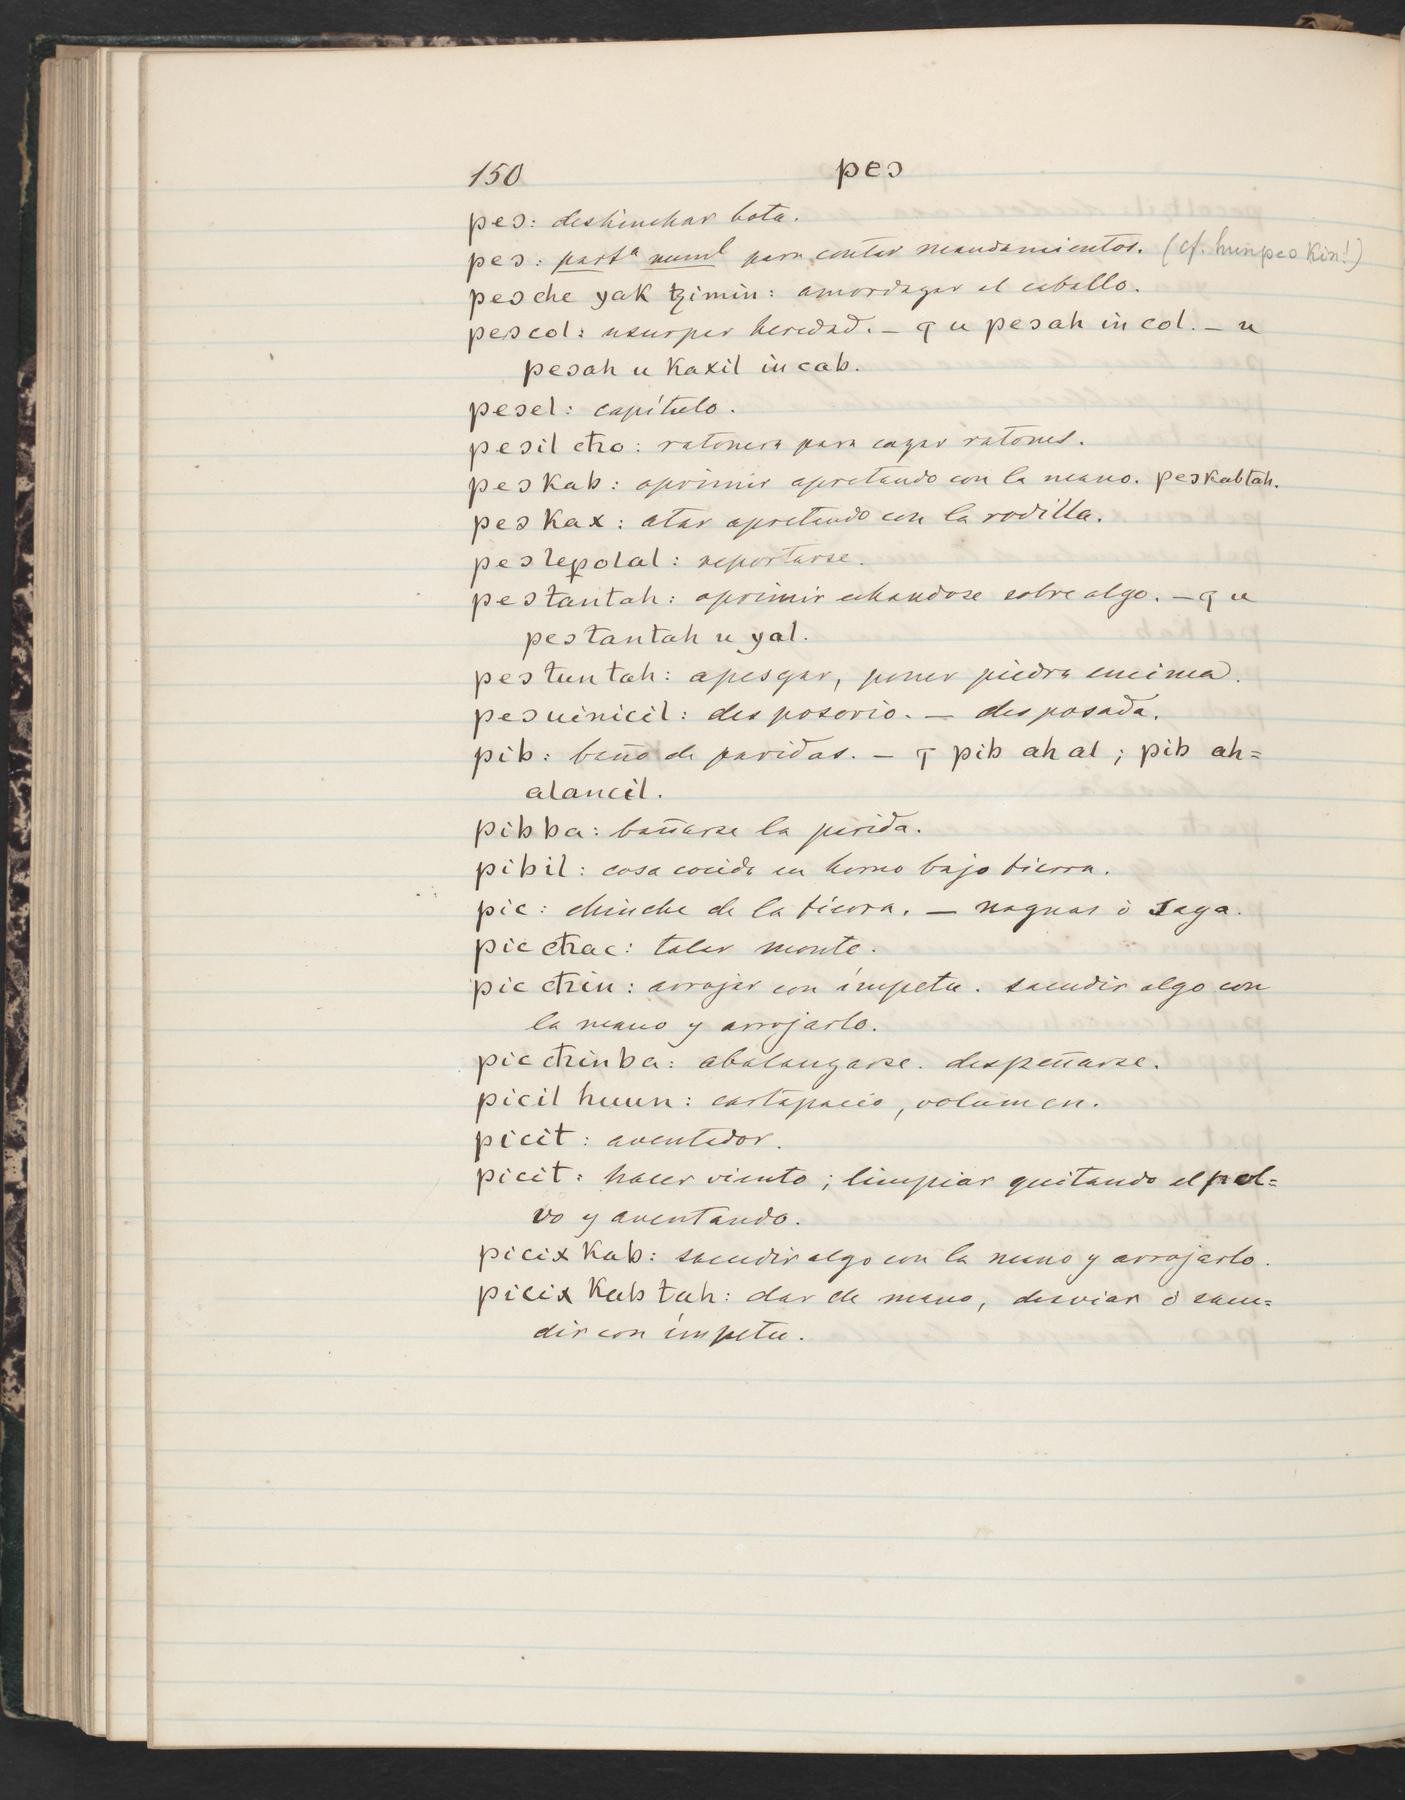 150 peↄ
peↄ: deshinchar bota.
peↄ: partª numl para contar mandamientos. (cf. hunpeↄ Kin!)
peↄ che yak tzimin: amordazar el caballo.
peↄ col: usurpar heredad. – ꟼ u peↄah in col. – u
peↄah u kaxil in cab.
peↄel: capítulo.
peↄil cħo: ratonera para cazar ratones.
peↄ kab: oprimir apretando con la mano. peↄkabtah.
peↄ kax: atar apretando con la rodilla.
peↄ lepolal: reportarse.
peↄ tantah: oprimir echandose sobre algo. – ꟼ u
peↄ tantah u yal.
peↄ tun tah: apesgar, poner piedra encima.
peↄ uinicil: desposorio. – desposada.
pib: baño de paridas. – ꟼ pib ah al; pib ah=
alancil.
pibba: bañarse la parida.
pibil: cosa cocida en horno bajo tierra.
pic: chinche de la tierra. – naguas ò saya.
pic cħac: talar monte.
pic cħin: arrojar con ímpetu. sacudir algo con
la mano y arrojarlo.
pic cħinba: abalanzarse. despeñarse.
picil huun: cartapacio, volumen.
picit: aventador.
picit: hacer viento; limpiar quitando el pol=
vo y aventando.
picix kab: sacudir algo con la mano y arrojarlo.
picix kab tah: dar de mano, desviar ò sacu=
dir con ímpetu.